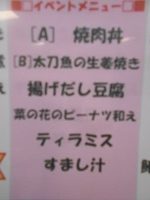 □イベントメニュー□
[A] 焼肉丼
[B]太刀魚の生姜焼き
揚げだし豆腐
菜の花のピーナツ和え
ティラミス
すまし汁